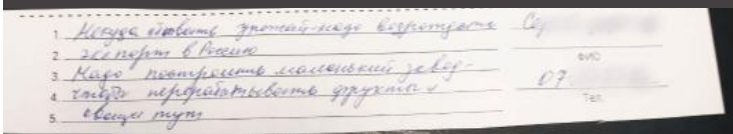 1. Некуда сбывать урожай-надо возрождать
2. экспорт в Россию
3. Надо построить маленький завод-
4. чтобы перерабатывать фрукты и
5. овощи тут
ФИО
07
Тел.